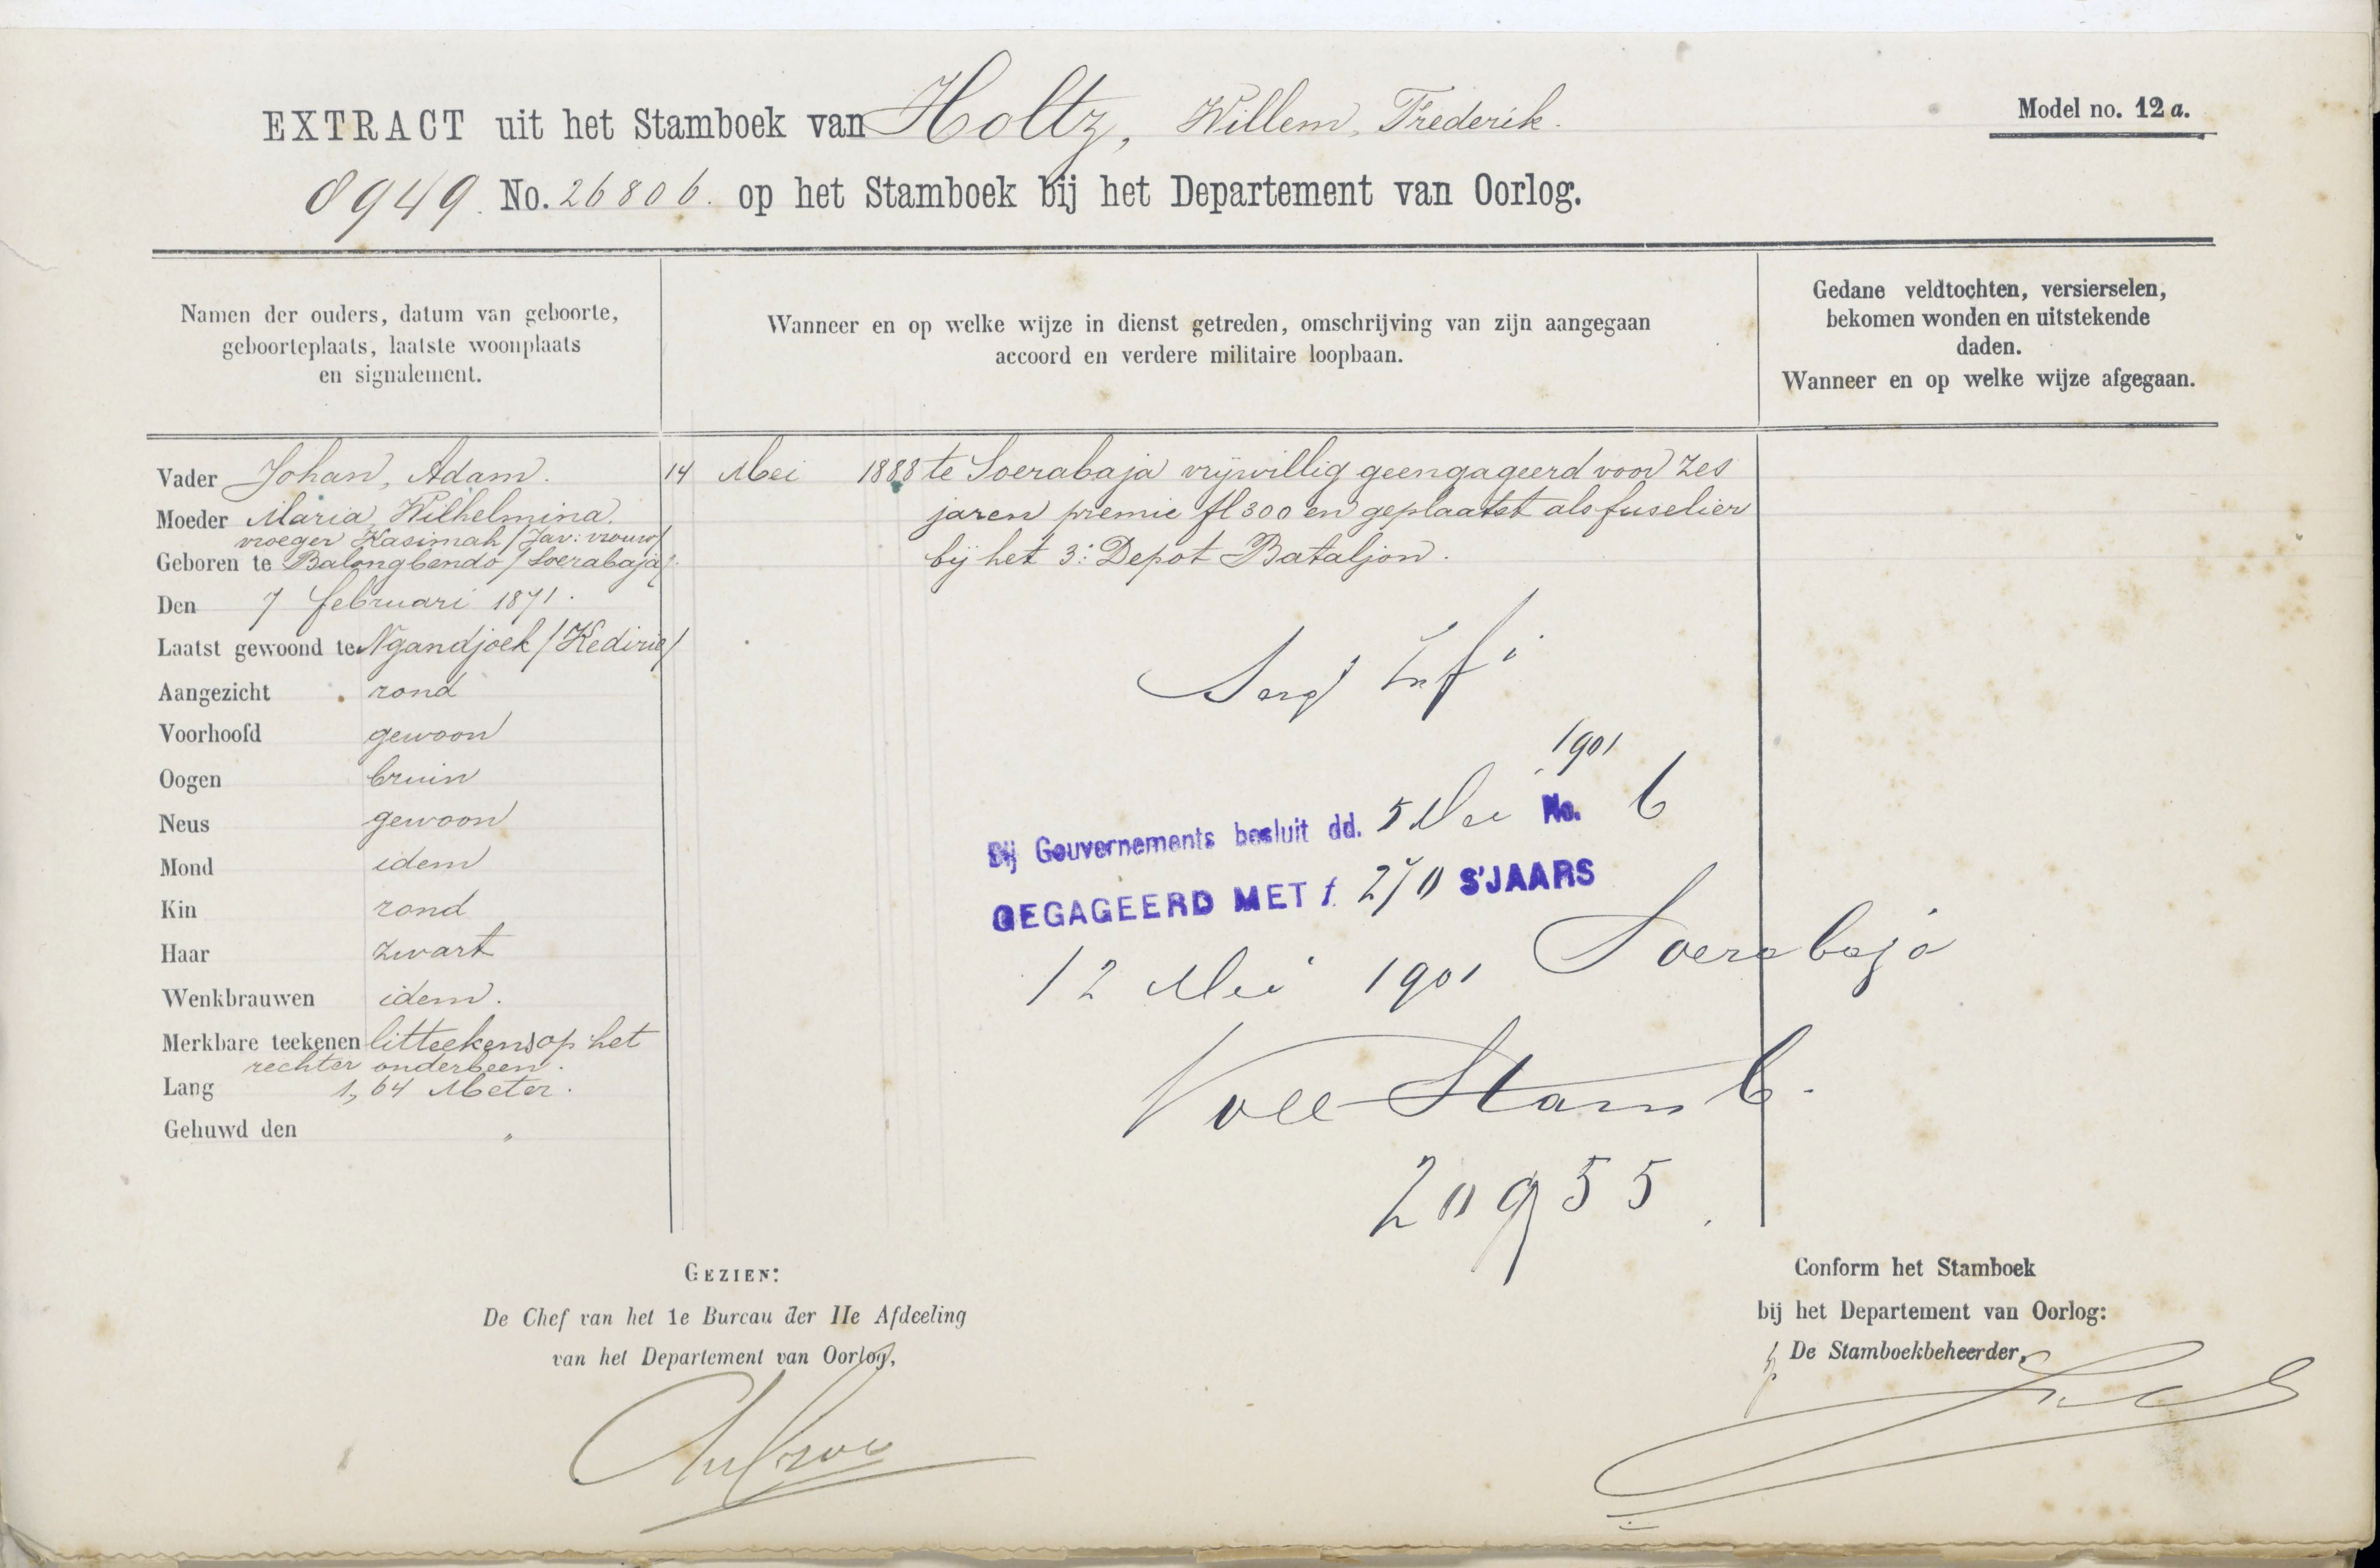 EXTRACT uit het Stamboek van Holtz, Willem, Frederik.
Model no. 12 a.
8949. No. 26806. op het Stamboek bij het Departement van Oorlog.
Namen der ouders, datum van geboorte,
geboorteplaats, laatste woonplaats
en signalement.
Wanneer en op welke wijze in dienst getreden, omschrijving van zijn aangegaan
accoord en verdere militaire loopbaan.
Gedane veldtochten, versierselen,
bekomen wonden en uitstekende
daden.
Wanneer en op welke wijze afgegaan.
Vader Johan, Adam.
Moeder Maria, Wilhelmina.
vroeger Kasimah / Jav: vrouw/
Geboren te Balongbendo / Soerabaja/.
Den 7 februari 1871.
Laatst gewoond te Ngandjoek / Kedirie/
Aangezicht rond
Voorhoofd gewoon
Oogen bruin
Neus gewoon
Mond idem
Kin rond
Haar zwart
Wenkbrauwen idem.
Merkbare teekenen litteekens op het
rechter onderbeen.
Lang 1,64 Meter.
Gehuwd den "
14 Mei 1888 te Soerabaja vrijwillig geengageerd voor zes
jaren premie fl 300 en geplaatst als fuselier
bij het 3e Depot Bataljon.
Sergt Infi
1901
Bij Gouvernements besluit dd. 5 Mei No. 6
GEGAGEERD MET f. 270 S'JAARS
12 Mei 1901 Soerabaja
Voll Stamb.
20955.
GEZIEN:
De Chef van het 1e Bureau der IIe Afdeeling
van het Departement van Oorlog,
Conform het Stamboek
bij het Departement van Oorlog:
De Stamboekbeheerder,